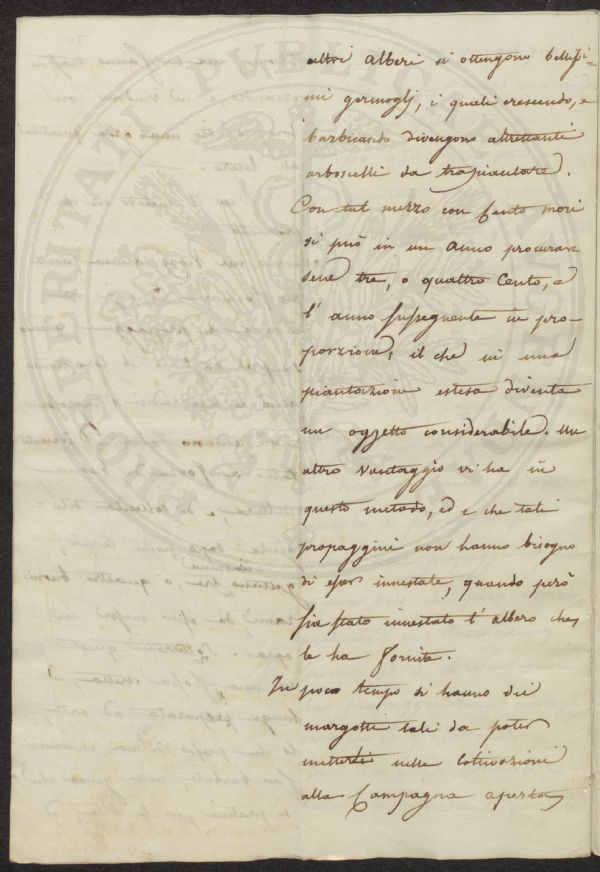 altri alberi si ottengono bellissi-
mi germoglj, i quali crescendo, e
barbicando divengono altrettanti
arboscelli da trapiantare.
Con tal mezzo con Cento mori
si può in un anno procurar
sene tre, o quattro Cento, e
l'anno susseguente in pro-
porzione; il che in una
piantazione estesa diventa
un oggetto considerabile. Un
altro vantaggio vi ha in
questo metodo, ed e che tali
propaggini non hanno bisogno
di esser innestate, quando però
sia stato innestato l'albero che
le ha fornite.
In poco tempo si hanno dei
margotti tali da poter
mettersi nelle Coltivazioni
alla Campagna aperta
PROSPERITATI PUBLICAE